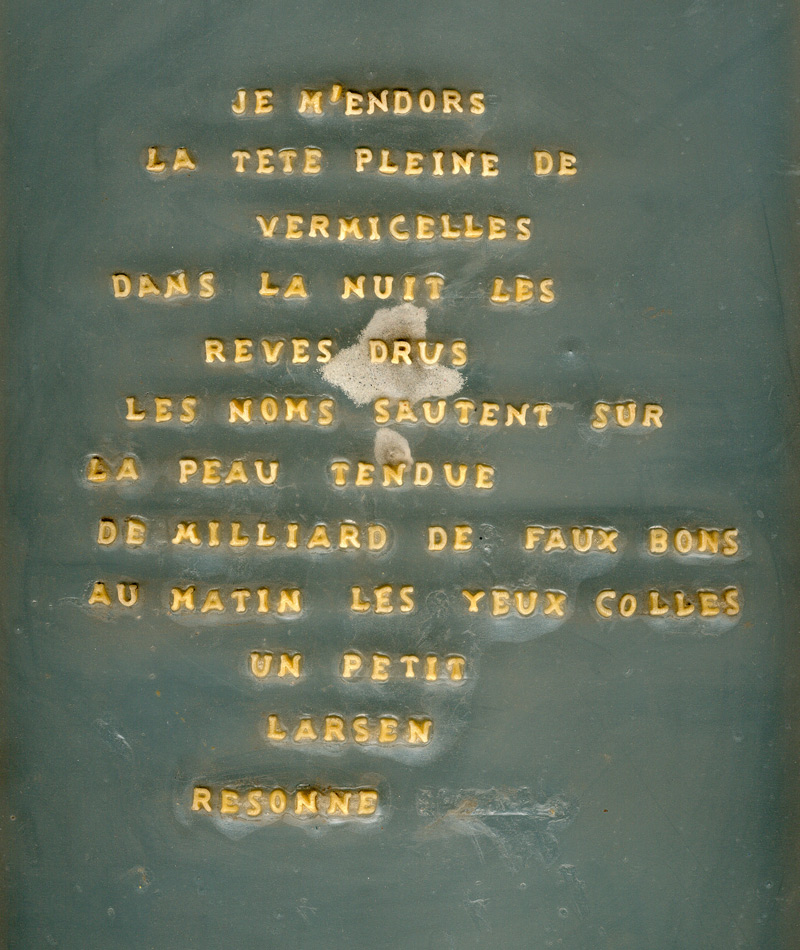 JE M'ENDORS
LA TETE PLEINE DE
VERMICELLES
DANS LA NUIT LES
REVES DRUS
LES NOMS SAUTENT SUR
LA PEAU TENDUE
DE MILLIARD DE FAUX BONS
AU MATIN LES YEUX COLLES
UN PETIT
LARSEN
RESONNE